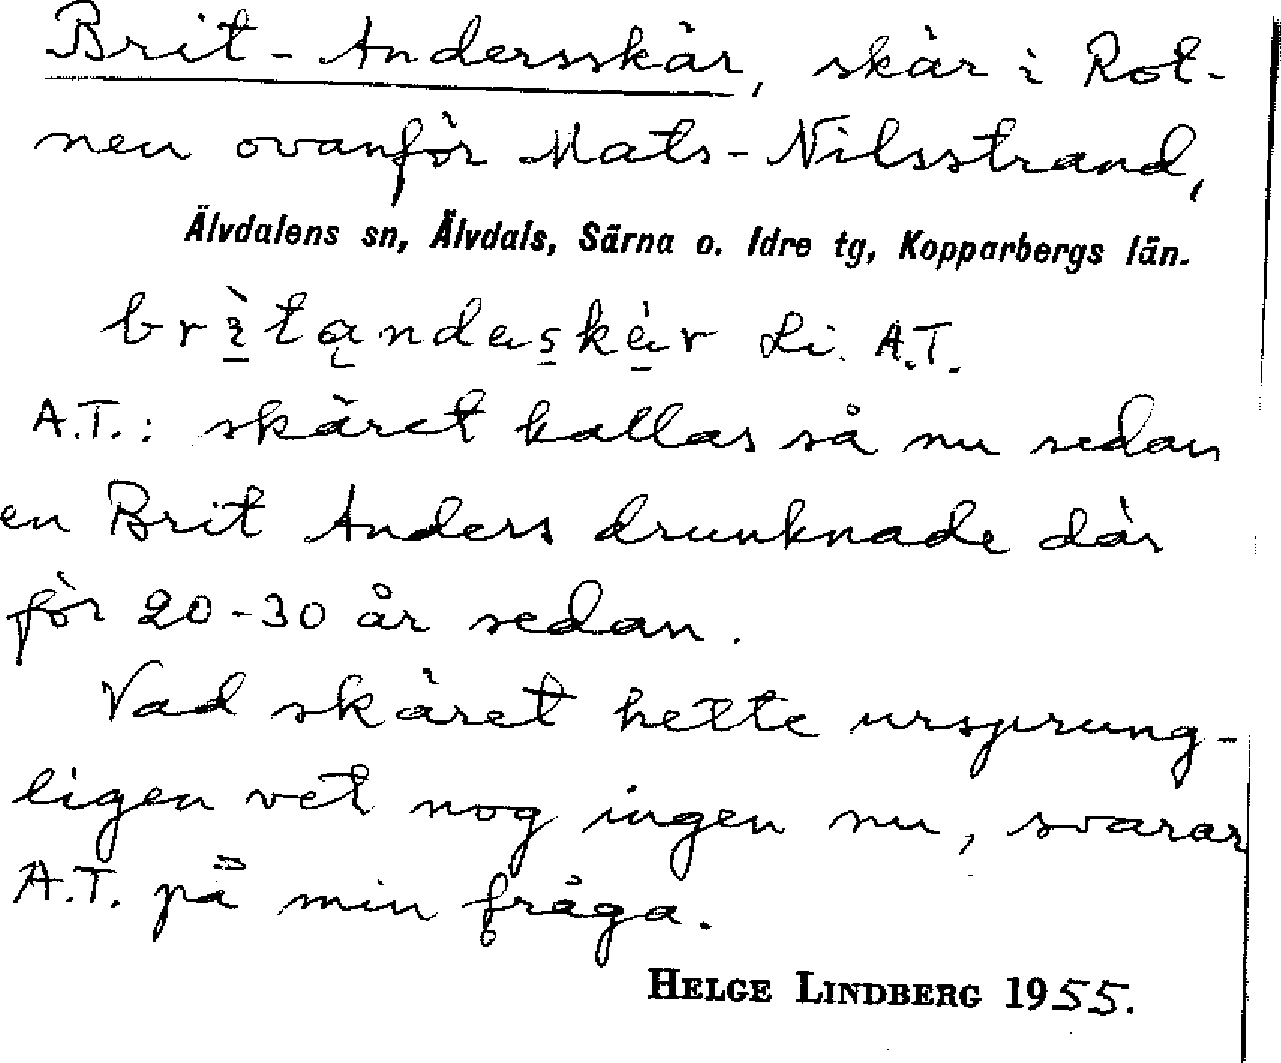 Brit-Andersskär, skär i Rot-
nen ovanför Mats-Nilsstrand,
Älvdalens sn, Älvdals, Särna o. Idre tg, Kopparbergs län.
Li. A.T.
A.T.: skäret kallas så nu sedan
en Brit Anders drunknade där
för 20-30 år sedan.
Vad skäret hette ursprung-
ligen vet nog ingen nu, svarar
A.T. på min fråga.
HELGE LINDBERG 1955.